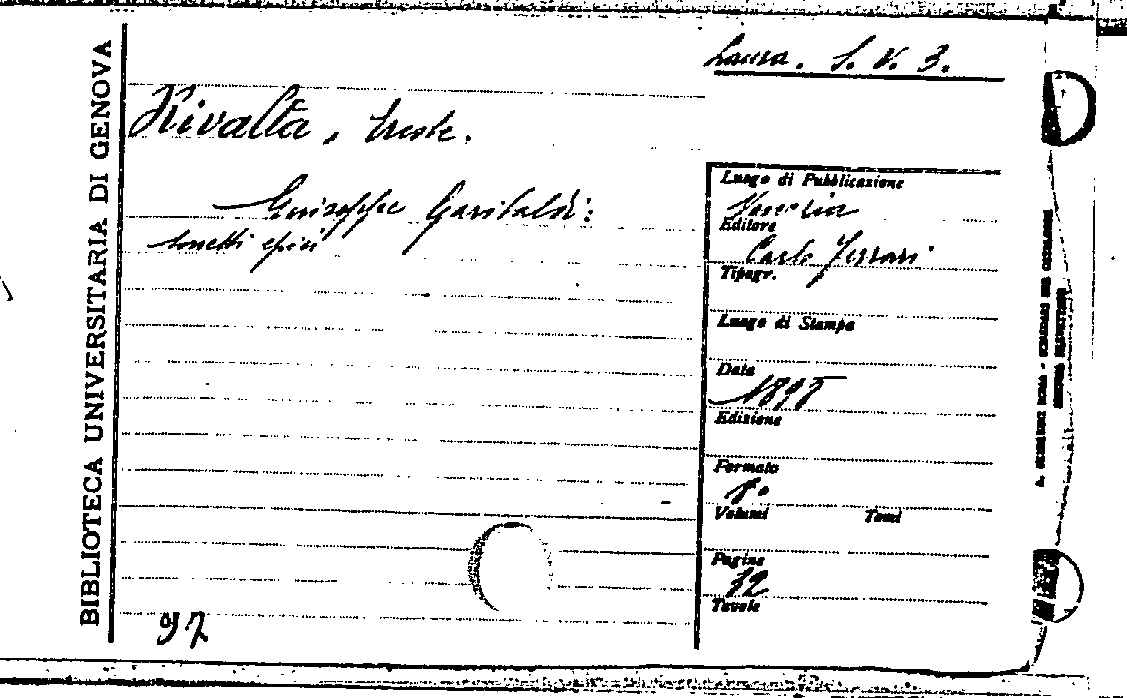 BIBLIOTECA UNIVERSITARIA DI GENOVA
Laura. S. V. 3.
Rivalta, Ercole.
Giuseppe Garibaldi:
sonetti epici
Luogo di Pubblicazione
Venezia
Editore
Carlo Ferrari
Tipogr.
Luogo di Stampa
Data
Edizione
Formato
8°
Volumi Tomi
Pagine
32
Tavole
97